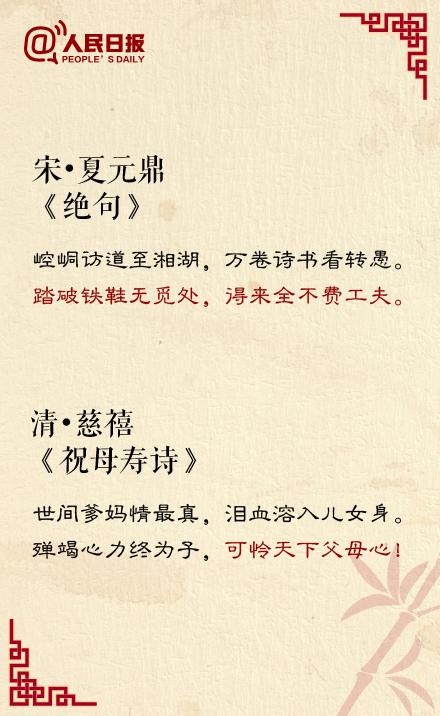 @人民日报
PEOPLE'S DAILY
宋·夏元鼎
《绝句》
崆峒访道至湘湖，万卷诗书看转愚。
踏破铁鞋无觅处，得来全不费工夫。
清·慈禧
《祝母寿诗》
世间爹妈情最真，泪血溶入儿女身。
殚竭心力终为子，可怜天下父母心！